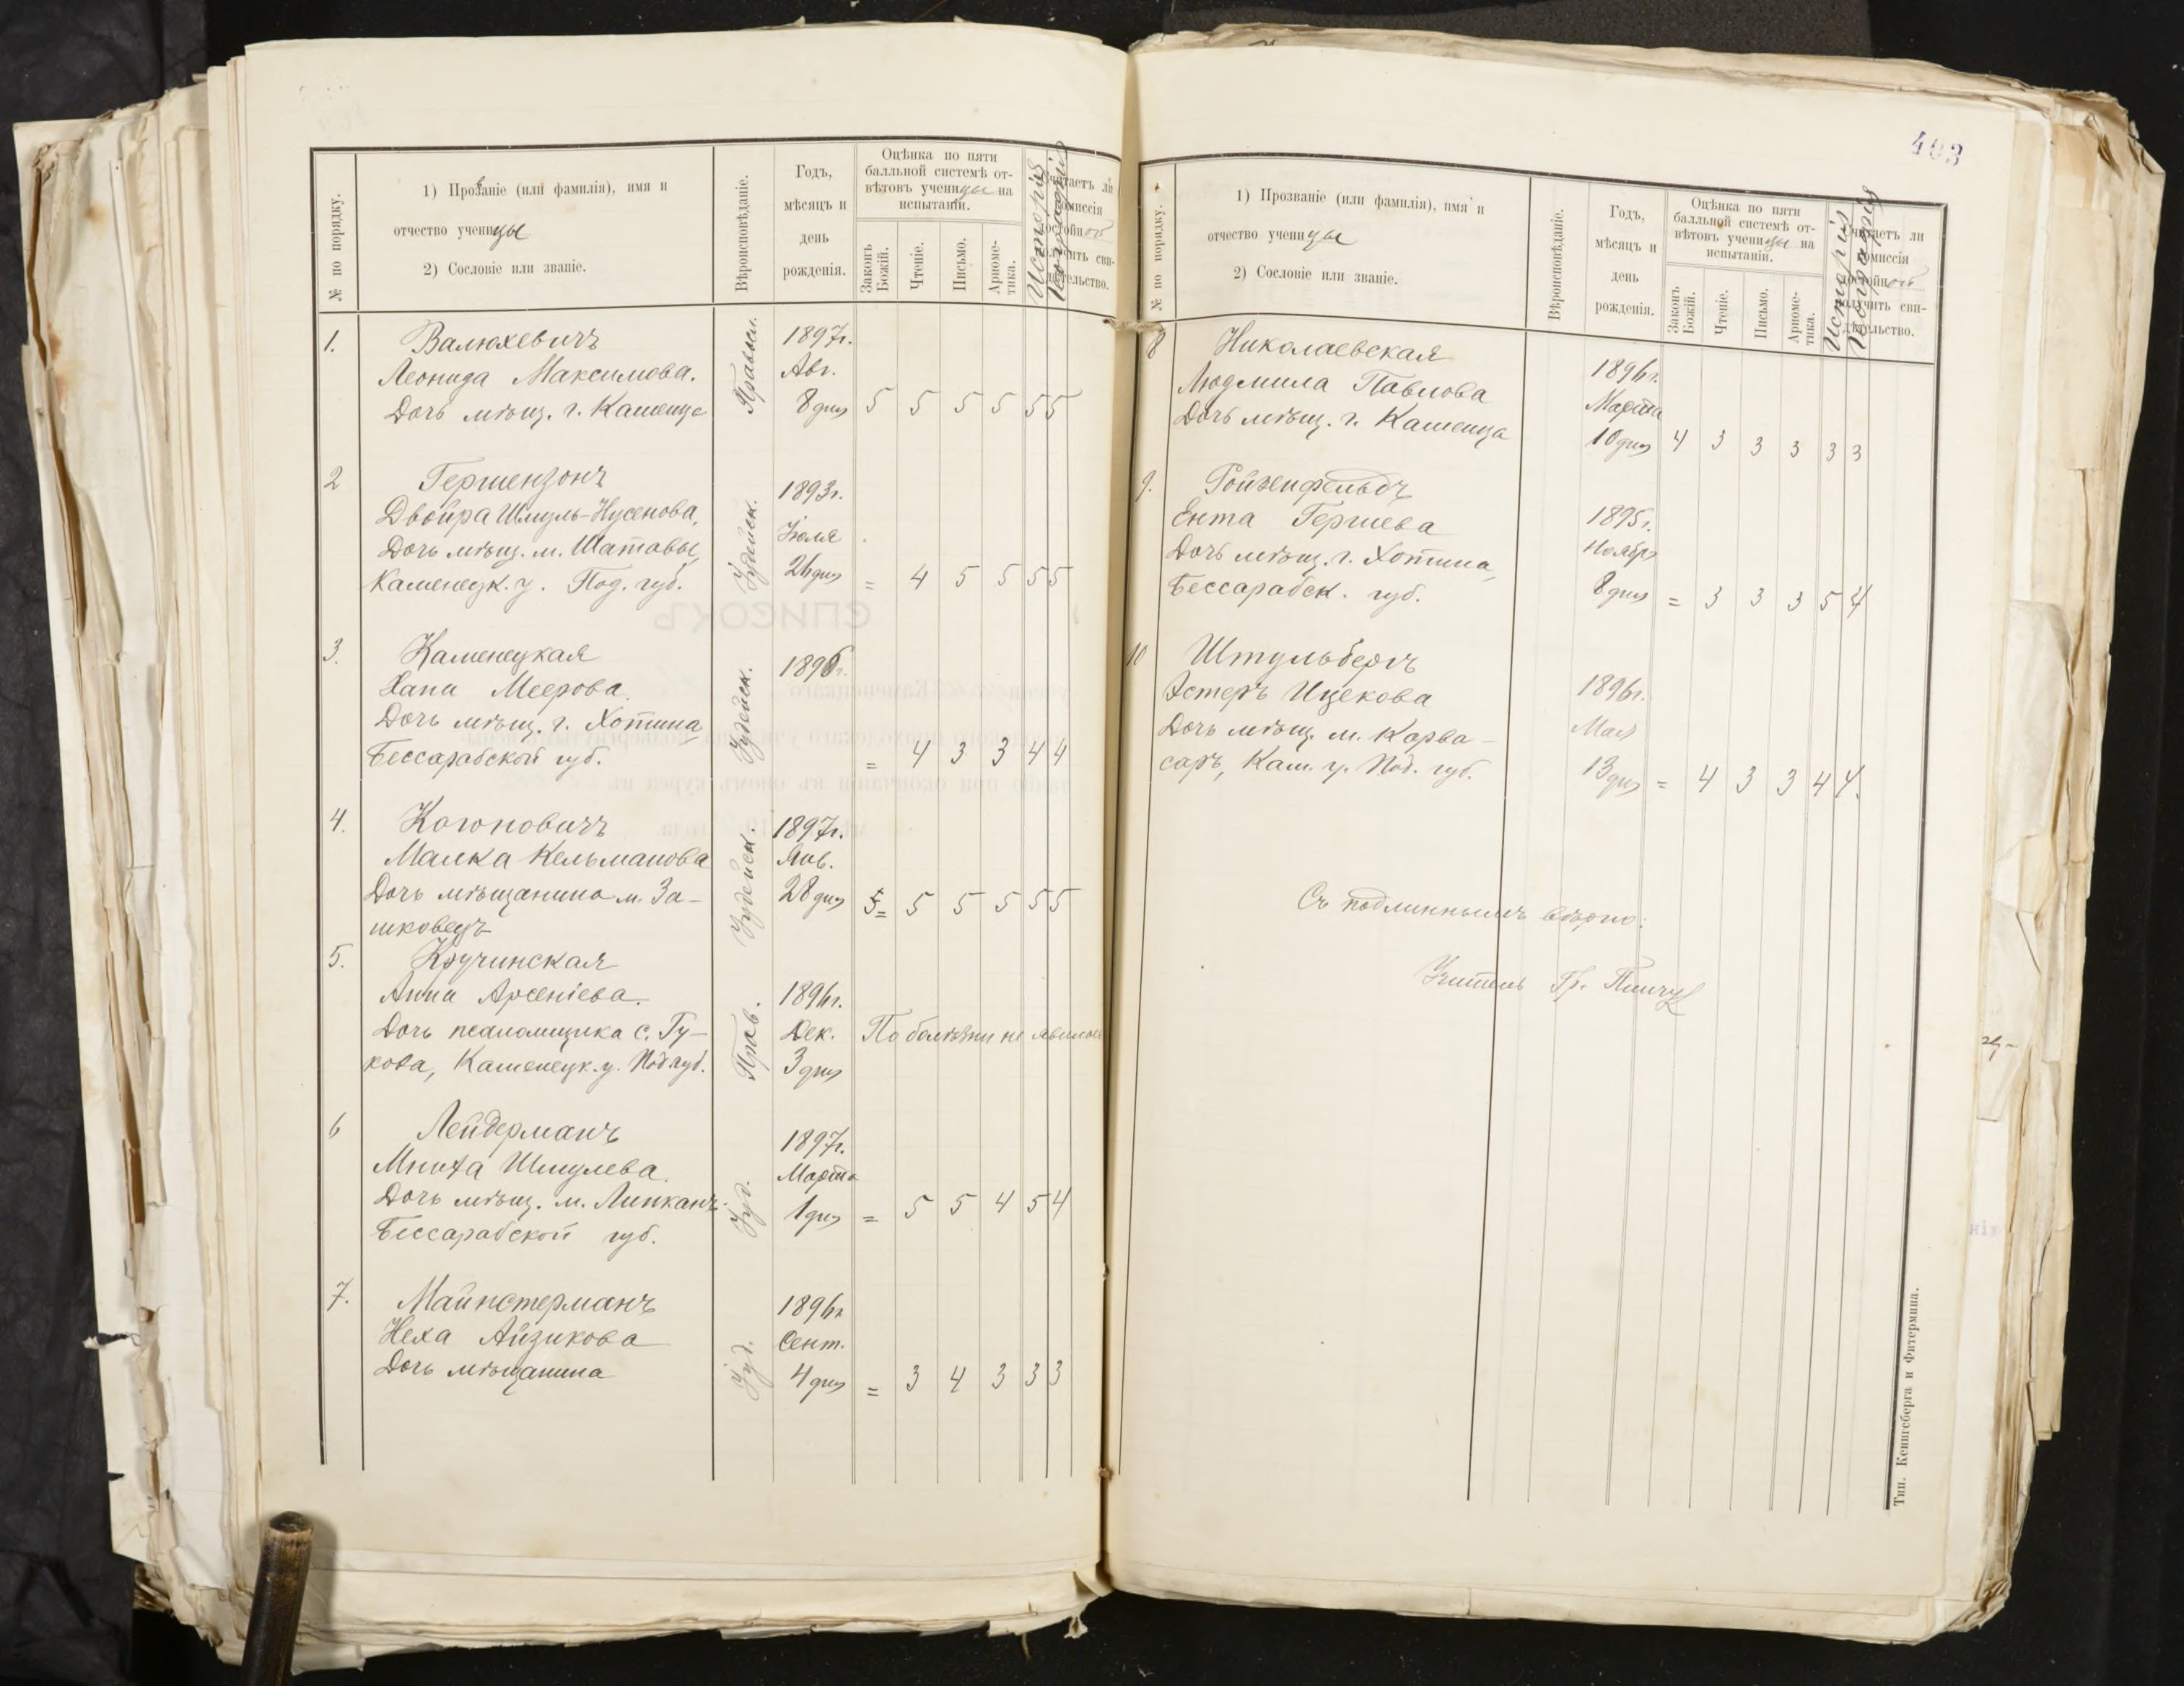 № по порядку.
1) Прозваніе (или фамилія), имя и
отчество ученицы
2) Сословіе или званіе.
Вѣроисповѣданіе.
Годъ,
мѣсяцъ и
день
рожденія.
Оцѣнка по пяти
балльной системѣ от-
вѣтовъ ученицы на
испытаніи.
Законъ
Божій.
Чтеніе.
Письмо.
Ариѳме-
тика.
Исторія
Географія
Считаетъ ли
комиссія
достойной
получить сви-
дѣтельство.
1. Валюхевичъ 1897г.
Леонида Максимова. Правосл. Авг.
Дочь мѣщ. г. Каменца 8 дня 5 5 5 5 5 5
2 Гершензонъ 1893г.
Двойра Шмуль-Нусенова, Іудейск.
Дочь мѣщ. м. Шатавы, Іюля
Каменецк. у. Под. губ. 26 дня = 4 5 5 5 5
3. Каменецкая 1896г.
Хана Меерова. Іудейск.
Дочь мѣщ. г. Хотина
Бессарабской губ. = 4 3 3 4 4
4. Когоновичъ 1897г.
Малка Кельманова Іудейск. Янв.
Дочь мѣщанина м. За- 28 дня 5= 5 5 5 5 5
шковецъ
5. Кручинская
Анна Арсеніева. 1896г.
Дочь псаломщика с. Гу- Прав. Дек. По болѣзни не явилась
кова, Каменецк. у. Под. губ. 3 дня
6 Лейдерманъ 1897г.
Мниха Шмулева. Марта
Дочь мѣщ. м. Липканъ Іуд. 1 дня = 5 5 4 5 4
Бессарабской губ.
7. Майнстерманъ 1896г.
Неха Айзикова Іуд. Сент.
Дочь мѣщанина 4 дня = 3 4 3 3 3
403
№ по порядку.
1) Прозваніе (или фамилія), имя и
отчество ученицы
2) Сословіе или званіе.
Вѣроисповѣданіе.
Годъ,
мѣсяцъ и
день
рожденія.
Оцѣнка по пяти
балльной системѣ от-
вѣтовъ ученицы на
испытаніи.
Законъ
Божій.
Чтеніе.
Письмо.
Ариѳме-
тика.
Исторія
Географія
Считаетъ ли
комиссія
достойной
получить сви-
дѣтельство.
8 Николаевская 1896г.
Людмила Павлова Марта
Дочь мѣщ. г. Каменца 10 дня 4 3 3 3 3 3
9. Ройзенфельдъ
Ента Гершева 1895г.
Дочь мѣщ. г. Хотина, Ноября
Бессарабск. губ. 8 дня = 3 3 3 5 4
10 Штульбергъ
Эстеръ Ицекова 1896г.
Дочь мѣщ. м. Карва- Мая
саръ, Кам. у. Под. губ. 13 дня = 4 3 3 4 4.
Съ подлиннымъ вѣрно:
Учитель Гр.
Тип. Кенигсберга и Фитермина.